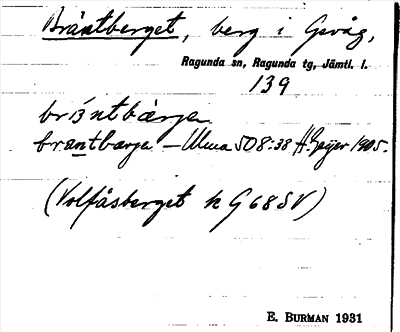 Bräntberget, berg i Gevåg,
Ragunda sn, Ragunda tg, Jämtl. l.
139
bräntbàrja
brantbarja – Ulma 508:38 H. Geijer 1905.
(Volfåsberget k G 68 SV)
E. BURMAN 1931